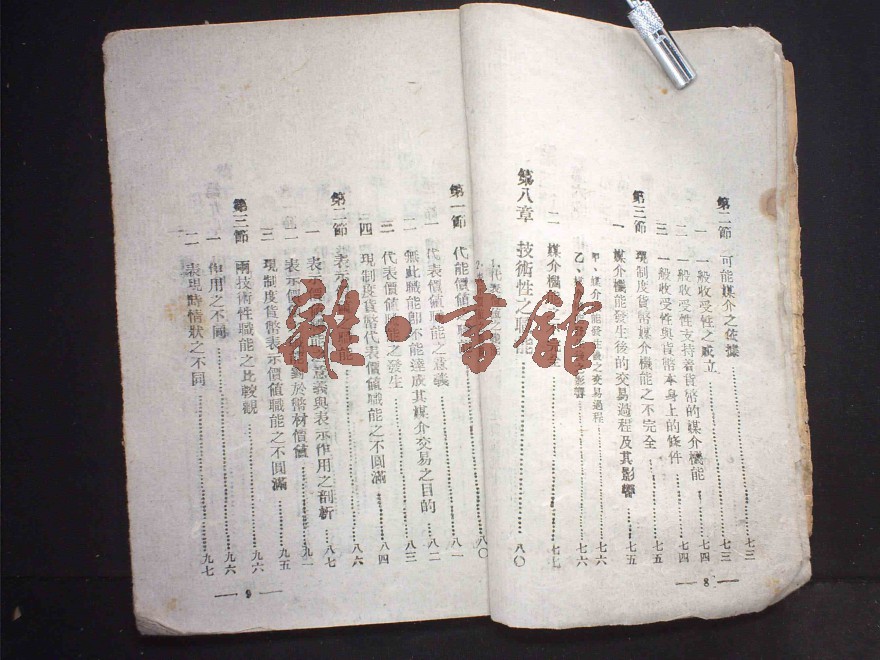 第二節 可能媒介之依據 七三
一 一般收受性之成立 七三
二 一般收受性支持着貨幣的媒介機能 七四
三 一般收受性與貨幣本身上的條件 七四
現制度貨幣媒介機能之不完全 七五
第三節 媒介機能發生後的交易過程及其影響 七五
一
甲、媒介機能發生後之交易過程 七六
乙、 影響 七六
二 媒介機 七七
第八章 技術性之職能 八〇
— 8 —
八〇
第一節 代能價值 八一
一 代表價值職能之意義 八二
二 無此職能卽不能達成其媒介交易之目的 八三
三 代表價值職能之發生 八四
四 現制度貨幣代表價值職能之不圓滿 八六
第二節 表示 職能 八七
一 表示價 意義與表示作用之剖析 九一
二 表示價值 於幣材價值 九五
三 現制度貨幣表示價值職能之不圓滿 九六
第三節 兩技術性職能之比較觀 九六
一 作用之不同
二 表現時情狀之不同 九七
— 9 —
雜·書館